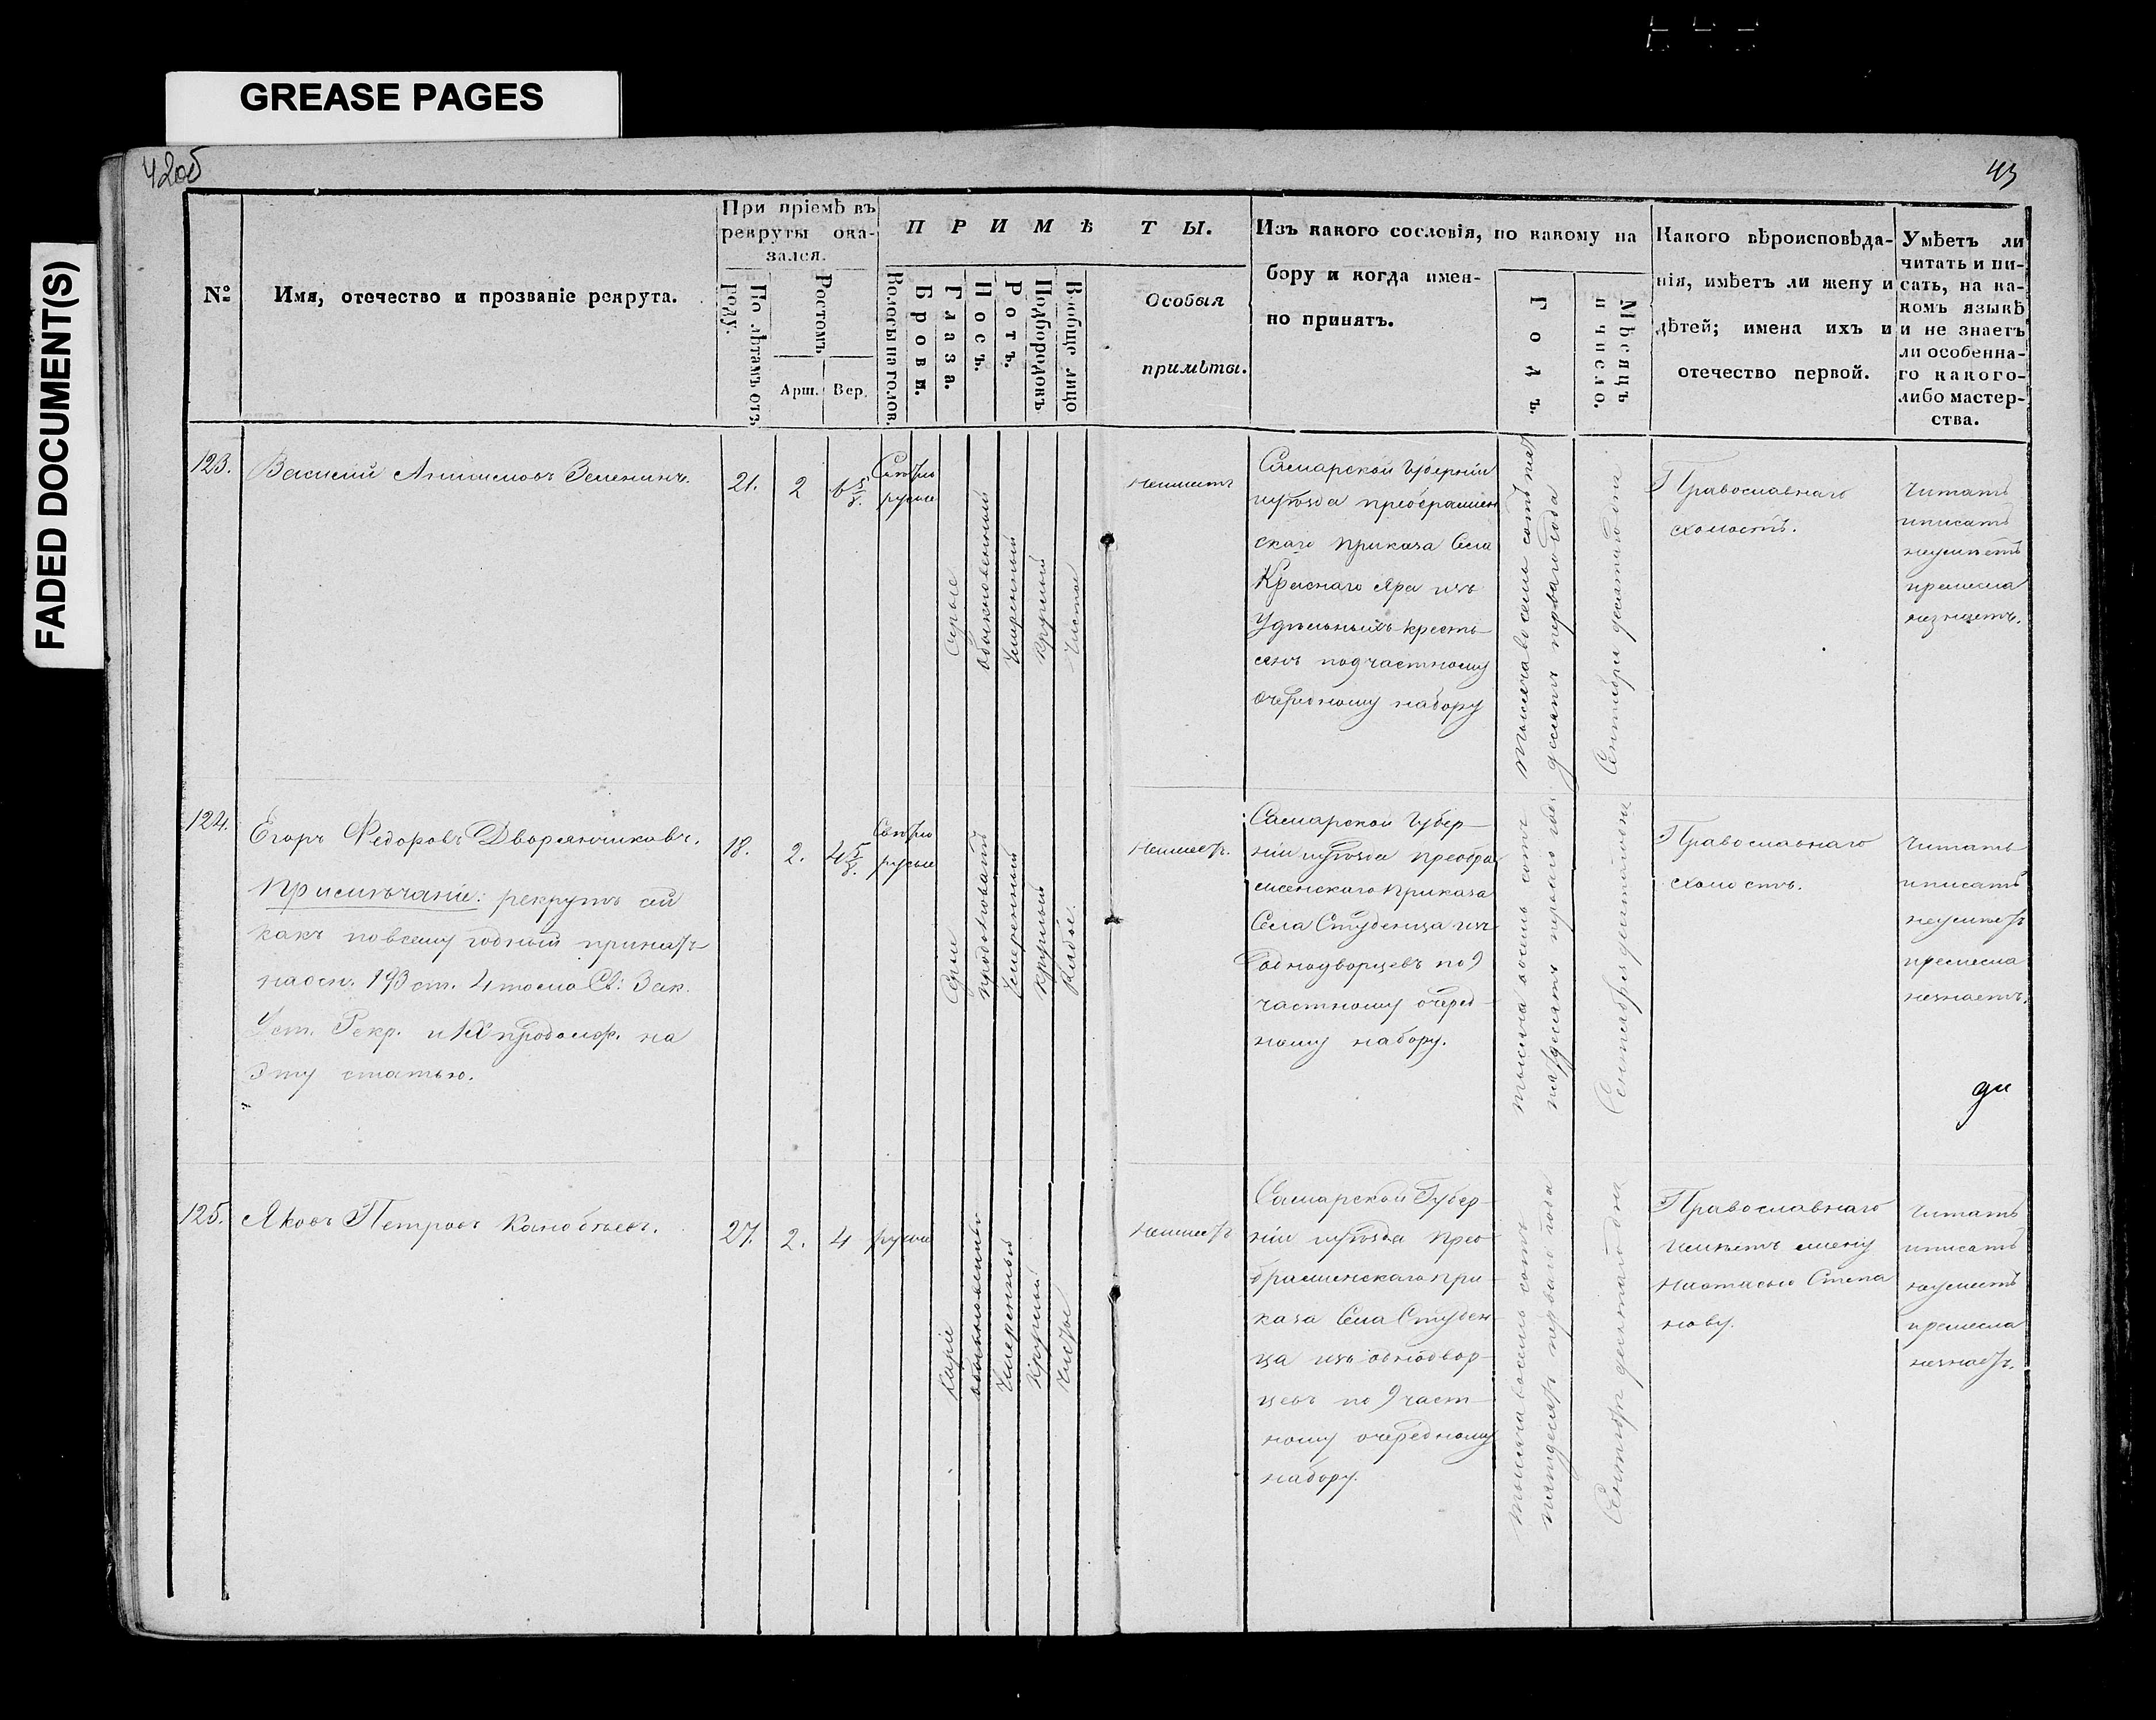 GREASE PAGES
FADED DOCUMENT(S)
42об
43
№
Имя, отечество и прозваніе рекрута.
При пріемѣ въ
рекруты ока-
зался.
По лѣтамъ отъ
роду.
Ростомъ.
Арш.
Вер.
ПРИМѢТЫ.
Волосы на голов.
Брови.
Глаза.
Носъ.
Ротъ.
Подбородокъ
Вообще лицо
Особыя
примѣты.
Изъ какого сословія, по какому на
бору и когда имен-
но принятъ.
Годъ.
Мѣсяцъ
и число.
Какого вѣроисповѣда-
нія, имѣетъ ли жену и
дѣтей; имена ихъ и
отечество первой.
Умѣетъ ли
читать и пи-
сать, на ка-
комъ языкѣ
и не знаетъ
ли особенна-
го какого-
либо мастер-
ства.
123.
Василій Анисимовъ Земенинъ.
21.
2
6 5/8.
Свѣтло
русые
Сѣрые
Обыкновенный
Умѣренный
Круглый
Чистое
Неимѣетъ
Самарской Губерніи
и уѣзда преображен
скаго приказа Села
Краснаго Яра изъ
Удѣльныхъ кресть-
янъ под частному
очередному набору
Тысяча восемь сотъ пять
десятъ перваго года
Сентября десятаго дня
Православнаго
холостъ.
Читать
иписать
неумѣетъ
иремесла
незнаетъ.
124.
Егоръ Федоровъ Дворянчиковъ.
Примѣчаніе: рекрутъ сей
какъ повсему годный принятъ
наосн. 193 ст. 4 тома Св: Зак.
Уст. Рекр. и IX продолж. на
эту статью.
18.
2.
4 5/8.
Свѣтло
русые
Сѣрые
продолговатый
Умеренный
Круглый
Рябое.
Неимѣетъ.
Самарской Губер-
ніи иуѣзда преобра
женскаго приказа
Села Студенца изъ
однодворцевъ под
частному очеред-
ному набору.
тысяча восемь сотъ
пятдесятъ перваго года
Сентября десятаго дня
Православнаго
холостъ.
Читать
иписать
неумѣетъ
иремесла
незнаетъ.
125.
Яковъ Петровъ Канобѣевъ.
27.
2.
4
русые
Каріе
обыкновенный
Умеренный
Круглый
Чистое
Неимѣетъ
Самарской Губер-
ніи иуѣзда прео-
браженскаго при-
каза Села Студен-
ца изъ однодвор-
цевъ под част-
ному очередному
набору.
тысяча восемь сотъ
пятдесятъ перваго года
Сентября десятаго дня
Православнаго
имѣетъ жену
Настасью Степа
нову.
Читать
иписать
неумѣетъ
иремесла
незнаетъ.